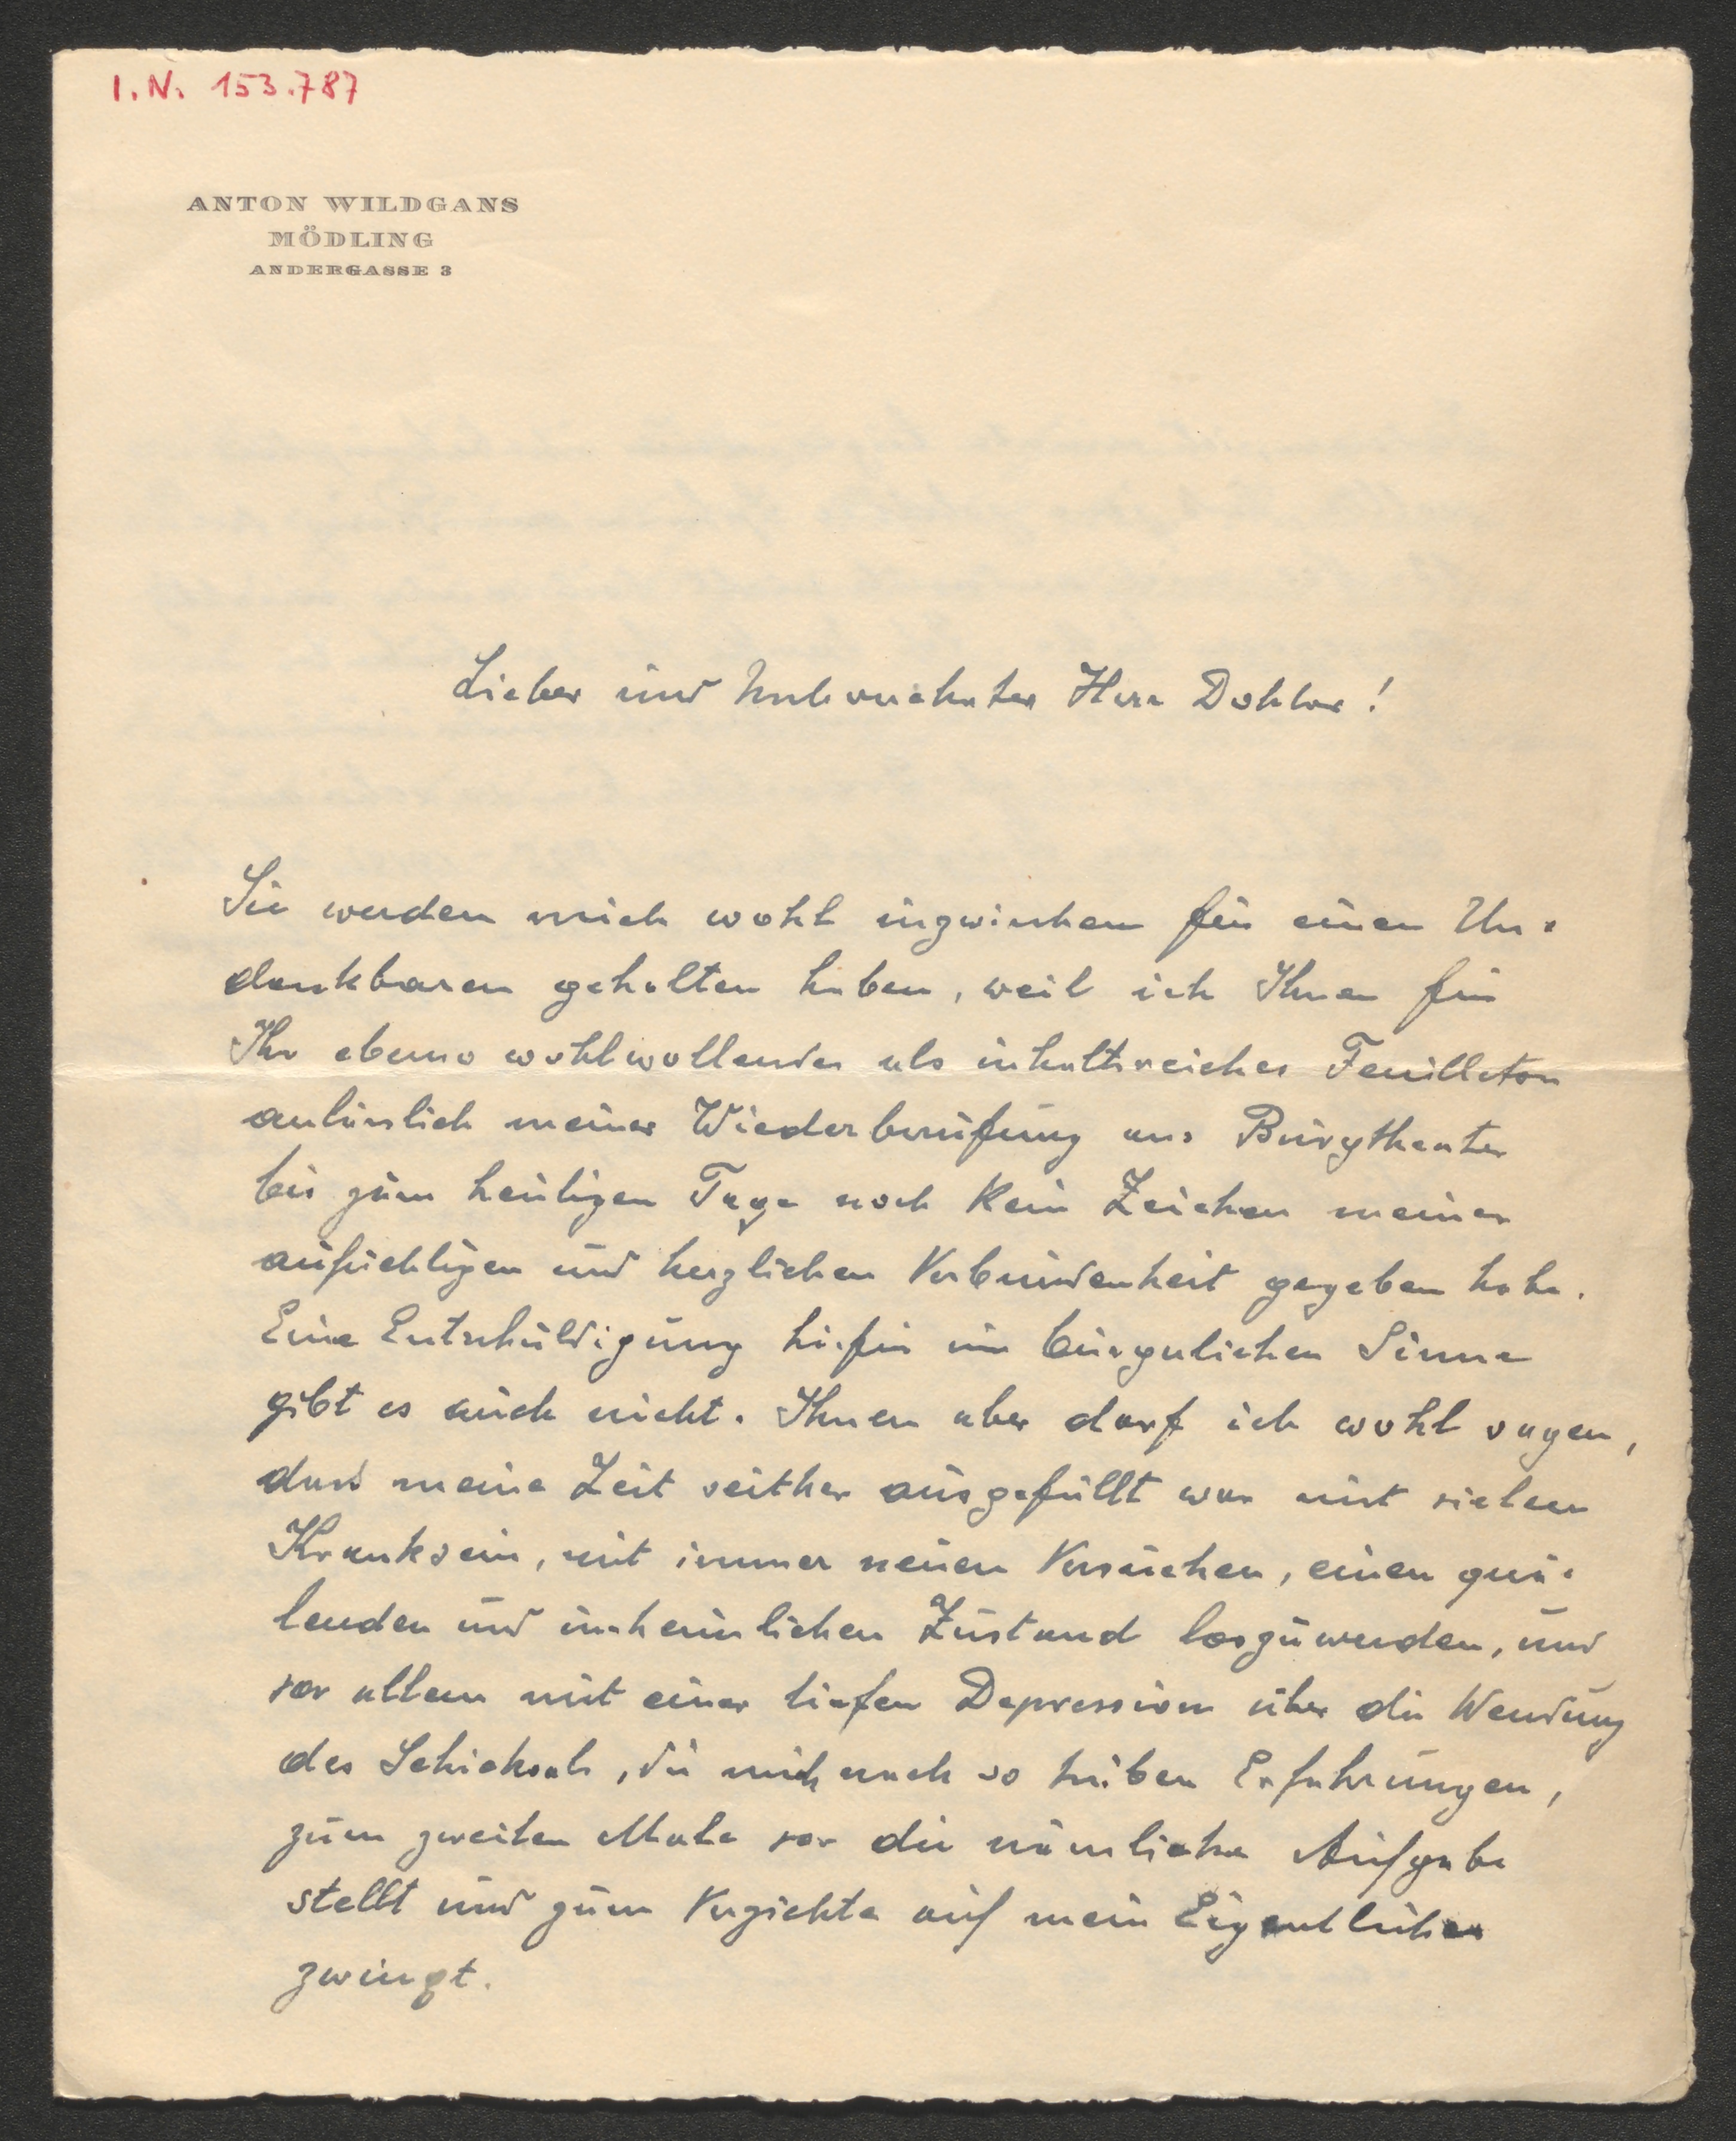 I.N. 153.787
ANTON WILDGANS
MÖDLING
ANDERGASSE 3
Lieber und hochverehrter Herr Doktor!
Sie werden mich wohl inzwischen für einen Un-
dankbaren gehalten haben, weil ich Ihnen für
Ihr ebenso wohlwollendes als inhaltsreiches Feuilleton
anlässlich meiner Wiederberufung ans Burgtheater
bis zum heutigen Tage noch kein Zeichen meiner
aufrichtigen und herzlichen Verbundenheit gegeben habe.
Eine Entschuldigung hiefür im bürgerlichen Sinne
gibt es auch nicht. Ihnen aber darf ich wohl sagen,
dass meine Zeit seither ausgefüllt war mit vielem
Kranksein, mit immer neuen Versuchen, einen quä-
lenden und unheimlichen Zustand loszuwerden, und
vor allem mit einer tiefen Depression über die Wendung
des Schicksals, die mich nach so trüben Erfahrungen,
zum zweiten Male vor die nämliche Aufgabe
stellt und zum Verzichte auf mein Eigentliches
zwingt.